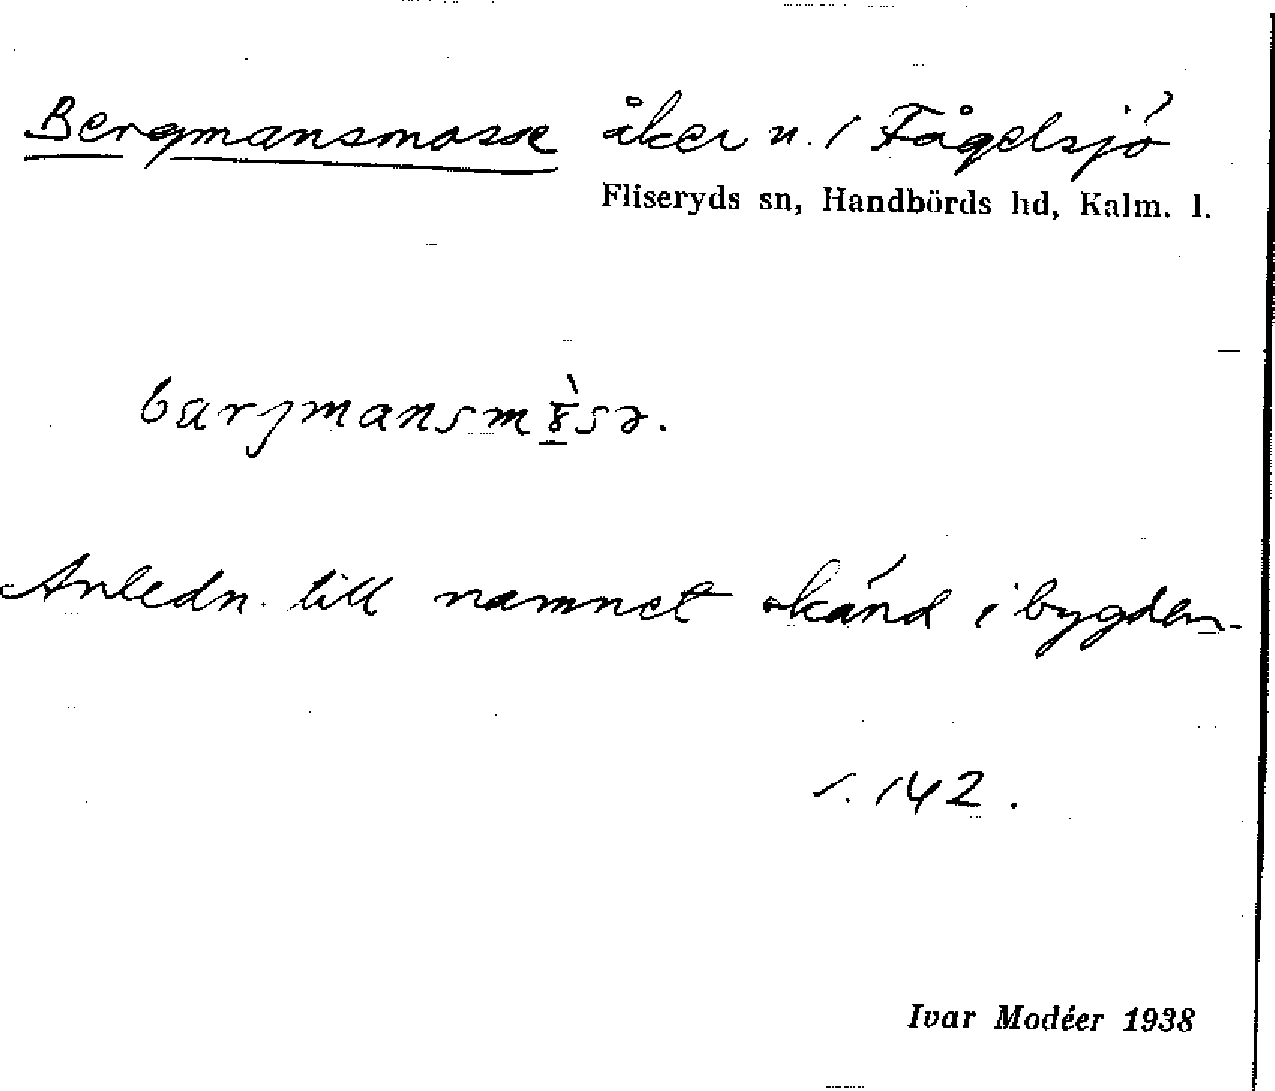 Bergmansmosse åker u. / Fågelsjö
Fliseryds sn, Handbörds hd, Kalm. l.
Anledn. till namnet okänd i bygden.
s. 142.
Ivar Modéer 1938